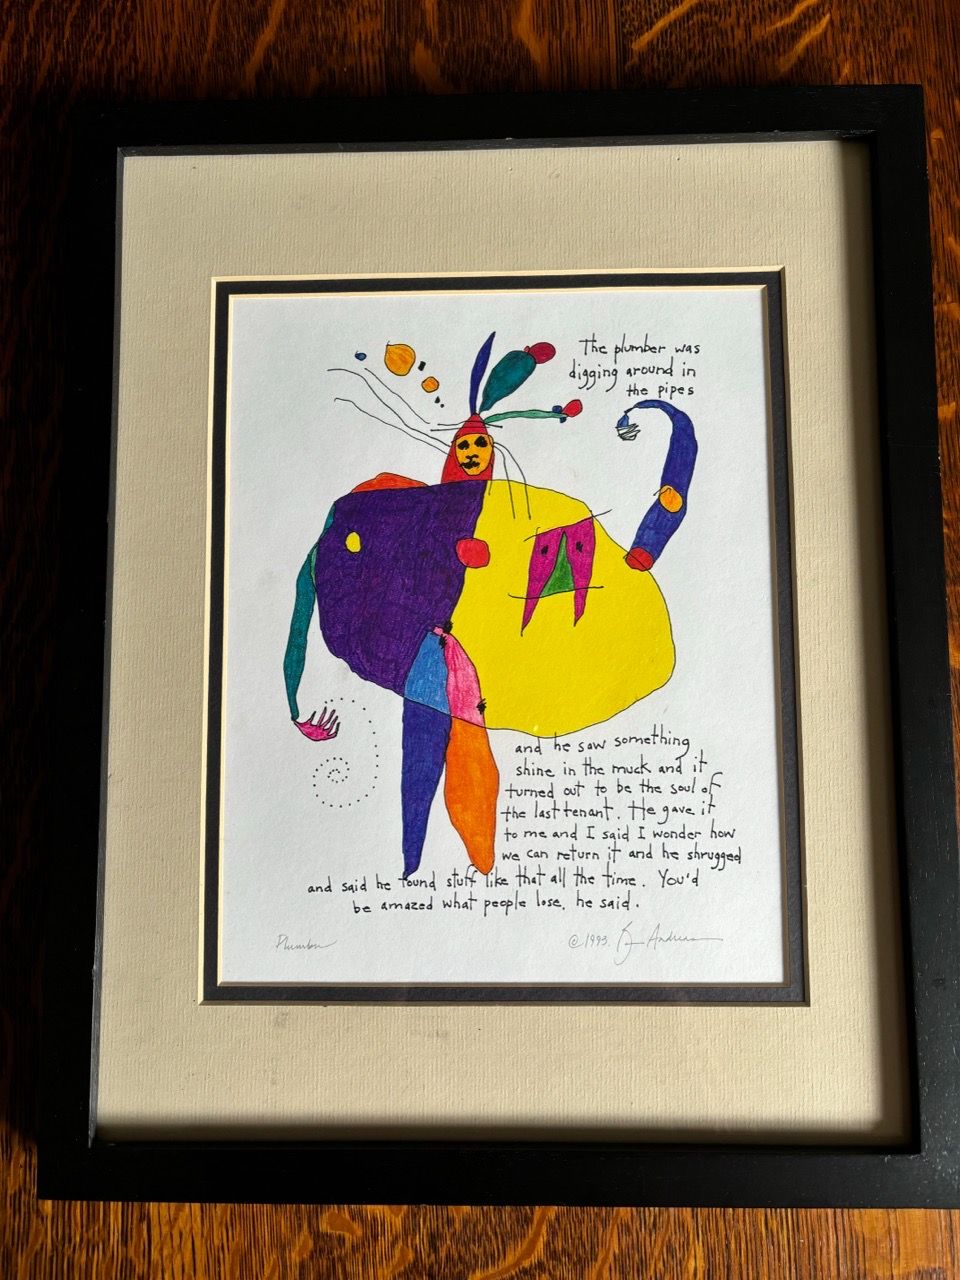 The plumber was
digging around in
the pipes
and he saw something
shine in the muck and it
turned out to be the soul of
the last tenant. He gave it
to me and I said I wonder how
we can return it and he shrugged
and said he found stuff like that all the time. You'd
be amazed what people lose, he said.
Plumber
©1993. Andreas